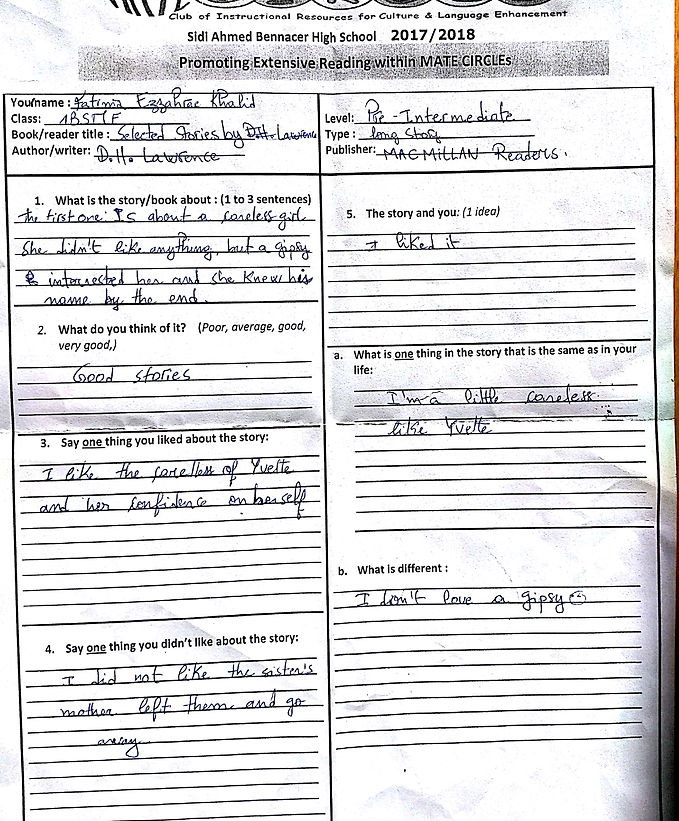 Club of Instructional Resources for Culture & Language Enhancement
Sidi Ahmed Bennacer High School 2017/2018
Promoting Extensive Reading within MATE CIRCLEs
Your name : Fatima Ezzahrae Khalid
Class: 1BSTIF
Book/reader title : Selected Stories by D.H. Lawrence
Author/writer: D.H. Lawrence
Level: Pre-Intermediate
Type : long Story
Publisher: MACMILLAN Readers.
1. What is the story/book about : (1 to 3 sentences)
the first one: Is about a careless girl
She didn't like anything, but a gipsy
interrested her and she knew his
name by the end.
2. What do you think of it? (Poor, average, good,
very good,)
Good stories
3. Say one thing you liked about the story:
I like the careless of Yvette
and her confidence on herself
4. Say one thing you didn't like about the story:
I did not like the sister's
mother left them and go
away
5. The story and you: (1 idea)
I liked it
a. What is one thing in the story that is the same as in your
life:
I'm a little careless
like Yvette
b. What is different :
I don't love a gipsy ☺